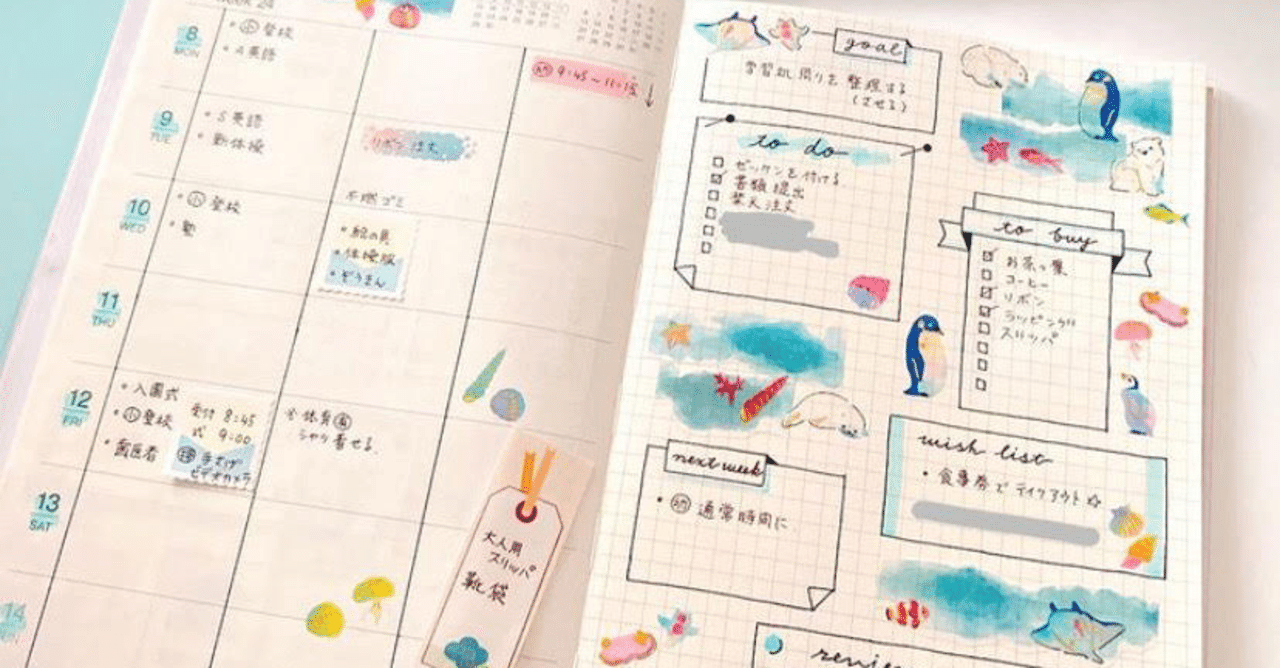 WEEK 24
8
MON
• 小 登校
• A英語
幼 9:45〜11:15
9
TUE
• S英語
• 新体操
リボン注文
10
WED
• 小 登校
• 塾
不燃ゴミ
• 絵の具
• 体操服
• ぞうきん
11
THU
12
FRI
• 入園式
• 小 登校
• 歯医者
受付 8:45
式 9:00
手さげ
ビデオカメラ
体育
シャツ着せる
13
SAT
14
大人用
スリッパ
靴袋
goal
学習机周りを整理する
(させる)
to do
ゼッケンを付ける
書類提出
楽天注文
to buy
お茶っ葉
コーヒー
リボン
ラッピング
スリッパ
next week
• 幼 通常時間に
wish list
• 食事券でテイクアウト☆
review